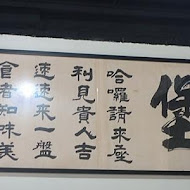 堡
哈囉請來座
利見貴人吉
速速來一盤
食者知味美